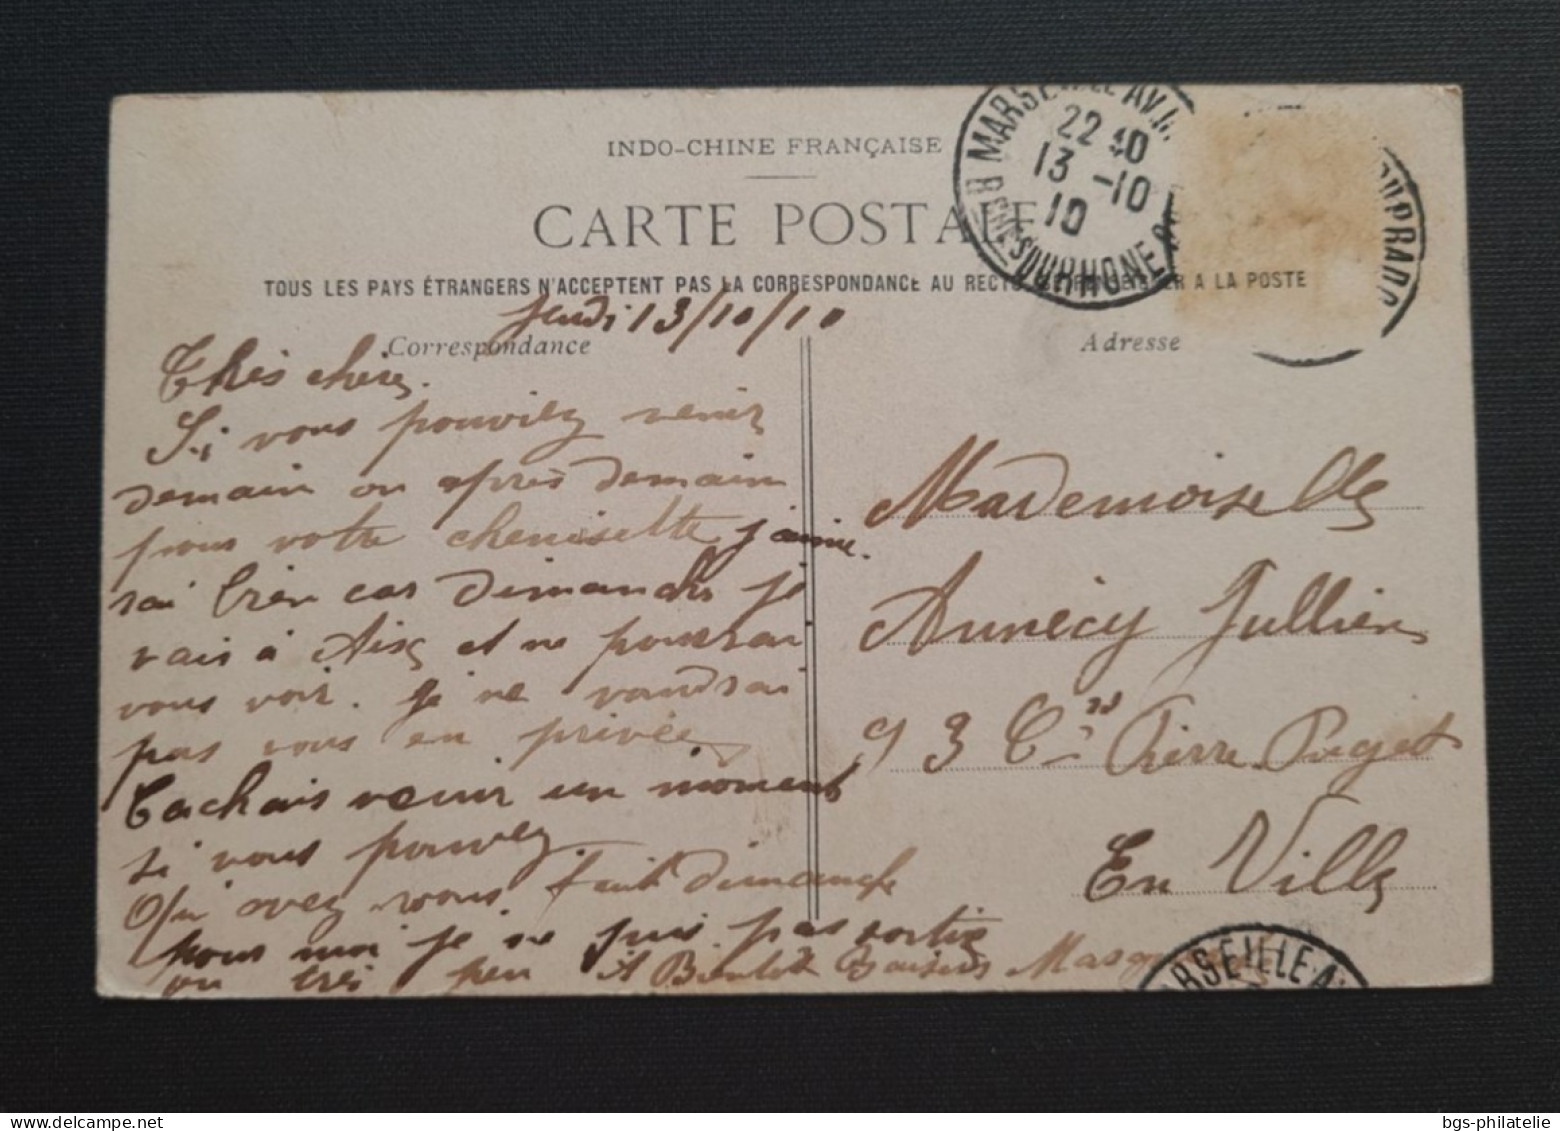 INDO-CHINE FRANÇAISE
CARTE POSTALE
TOUS LES PAYS ÉTRANGERS N'ACCEPTENT PAS LA CORRESPONDANCE AU RECTO A LA POSTE
MARSEILLE AV.
22 40
13 -10
10
BCHES DU RHONE
DU PRADO
Correspondance
Adresse
Jeudi 13/10/10
Thrès chère,
Si vous pouviez venir
demain ou après demain
pour votre chemisette j'aime
rai bien car dimanche je
vais à Aix et ne pourrai
vous voir. Je ne voudrai
pas vous en privée
Tachais venir un moment
si vous pouvez
Qu'avez vous fait dimanche
pour moi je ne suis pas sortie
ou très peu A Bientôt Baisers
Mademoiselle
Annècy Jullien
93 Crs Pierre Puget
En Ville
MARSEILLE A
bgs-philatelie